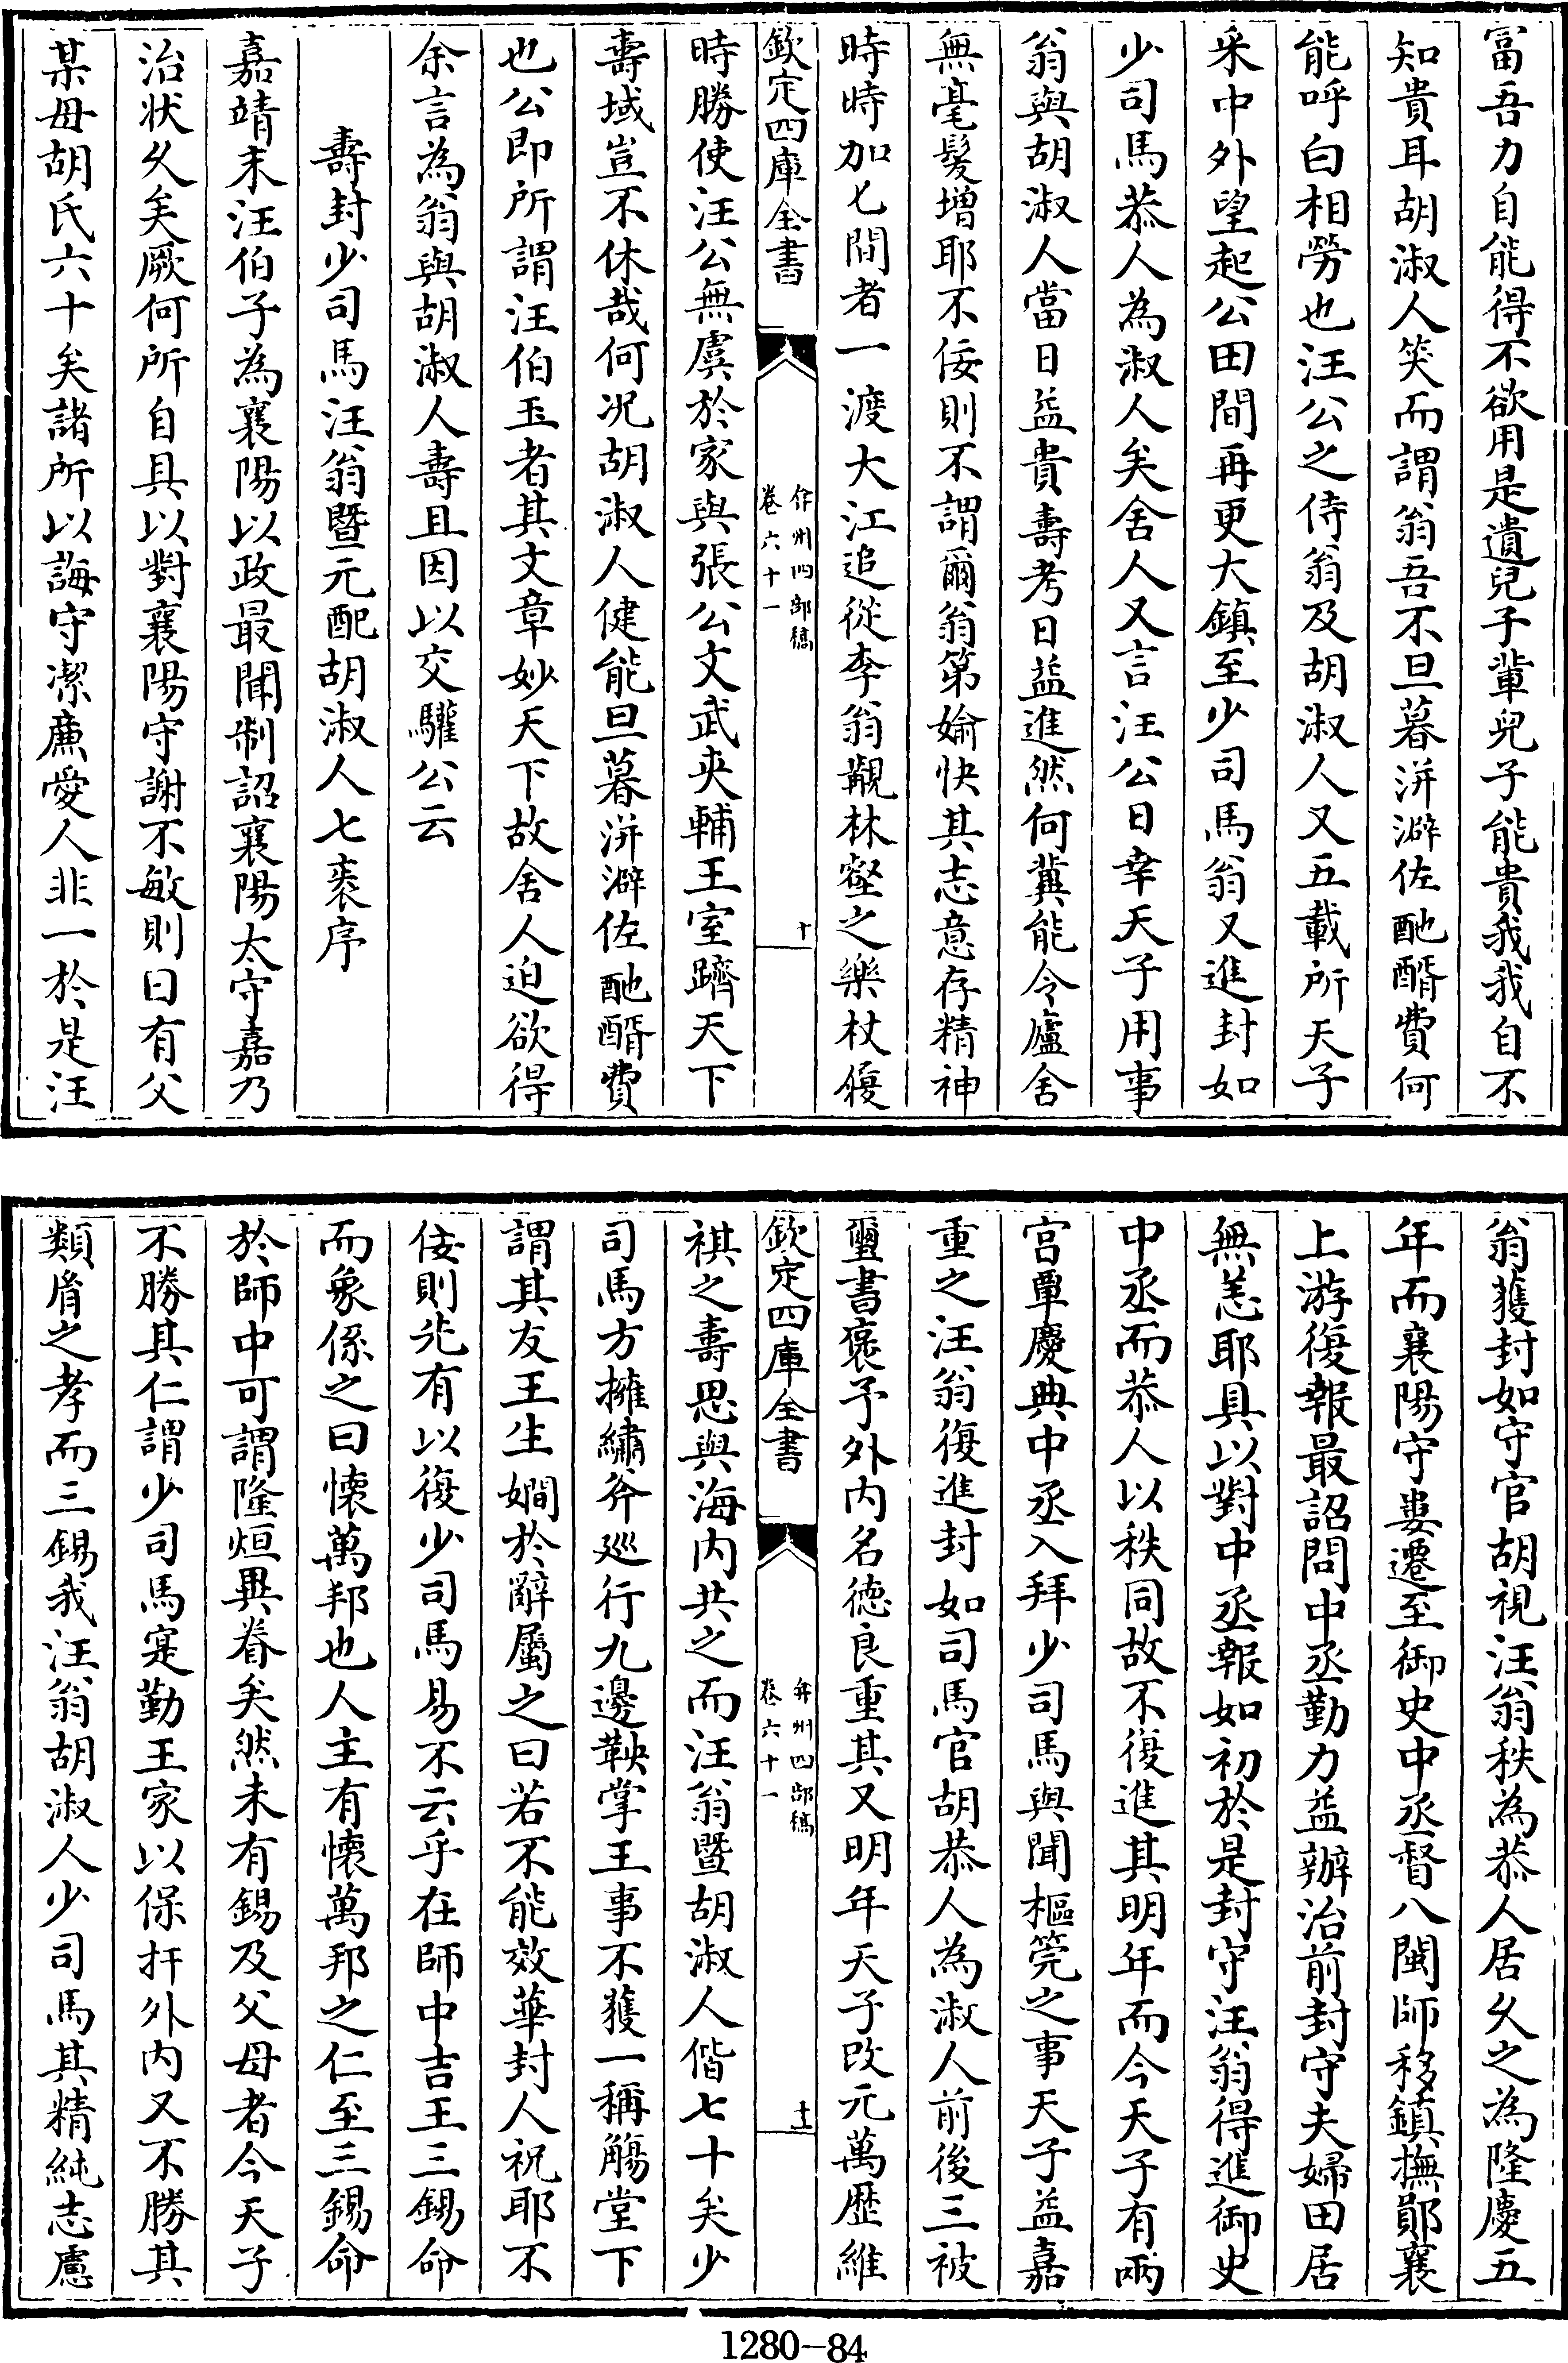 富吾力自能得不欲用是遺兒子輩兒子能貴我我自不
知貴耳胡淑人笑而謂翁吾不旦暮洴澼佐酏醑費何
能呼白相勞也汪公之侍翁及胡淑人又五載所天子
采中外望起公田間再更大鎮至少司馬翁又進封如
少司馬恭人為淑人矣舍人又言汪公日幸天子用事
翁與胡淑人當日益貴壽考日益進然何冀能令廬舍
無毫髮增耶不佞則不謂爾翁第婾快其志意存精神
時時加匕間者一渡大江追從李翁覯林壑之樂杖履
欽定四庫全書
弇州四部稿
卷六十一
十
時勝使汪公無虞於家與張公文武夾輔王室躋天下
壽域豈不休哉何况胡淑人健能旦暮洴澼佐酏醑費
也公即所謂汪伯玉者其文章妙天下故舍人迫欲得
余言為翁與胡淑人壽且因以交驩公云
壽封少司馬汪翁暨元配胡淑人七袠序
嘉靖末汪伯子為襄陽以政最聞制詔襄陽太守嘉乃
治狀久矣厥何所自具以對襄陽守謝不敏則曰有父
某母胡氏六十矣諸所以誨守潔廉愛人非一於是汪
翁獲封如守官胡視汪翁秩為恭人居久之為隆慶五
年而襄陽守婁遷至御史中丞督八閩師移鎮撫鄖襄
上游復報最詔問中丞勤力益辦治前封守夫婦田居
無恙耶具以對中丞報如初於是封守汪翁得進御史
中丞而恭人以秩同故不復進其明年而今天子有兩
宮覃慶典中丞入拜少司馬與聞樞筦之事天子益嘉
重之汪翁復進封如司馬官胡恭人為淑人前後三被
璽書褒予外内名德良重其又明年天子改元萬歴維
欽定四庫全書
弇州四部稿
卷六十一
十一
祺之壽思與海内共之而汪翁暨胡淑人偕七十矣少
司馬方擁繡斧廵行九邊鞅掌王事不獲一稱觴堂下
謂其友王生嫺於辭屬之曰若不能效華封人祝耶不
佞則兆有以復少司馬易不云乎在師中吉王三錫命
而象係之曰懐萬邦也人主有懐萬邦之仁至三錫命
於師中可謂隆烜異眷矣然未有錫及父母者今天子
不勝其仁謂少司馬寔勤王家以保扞外内又不勝其
類胥之孝而三錫我汪翁胡淑人少司馬其精純志慮
1280-84